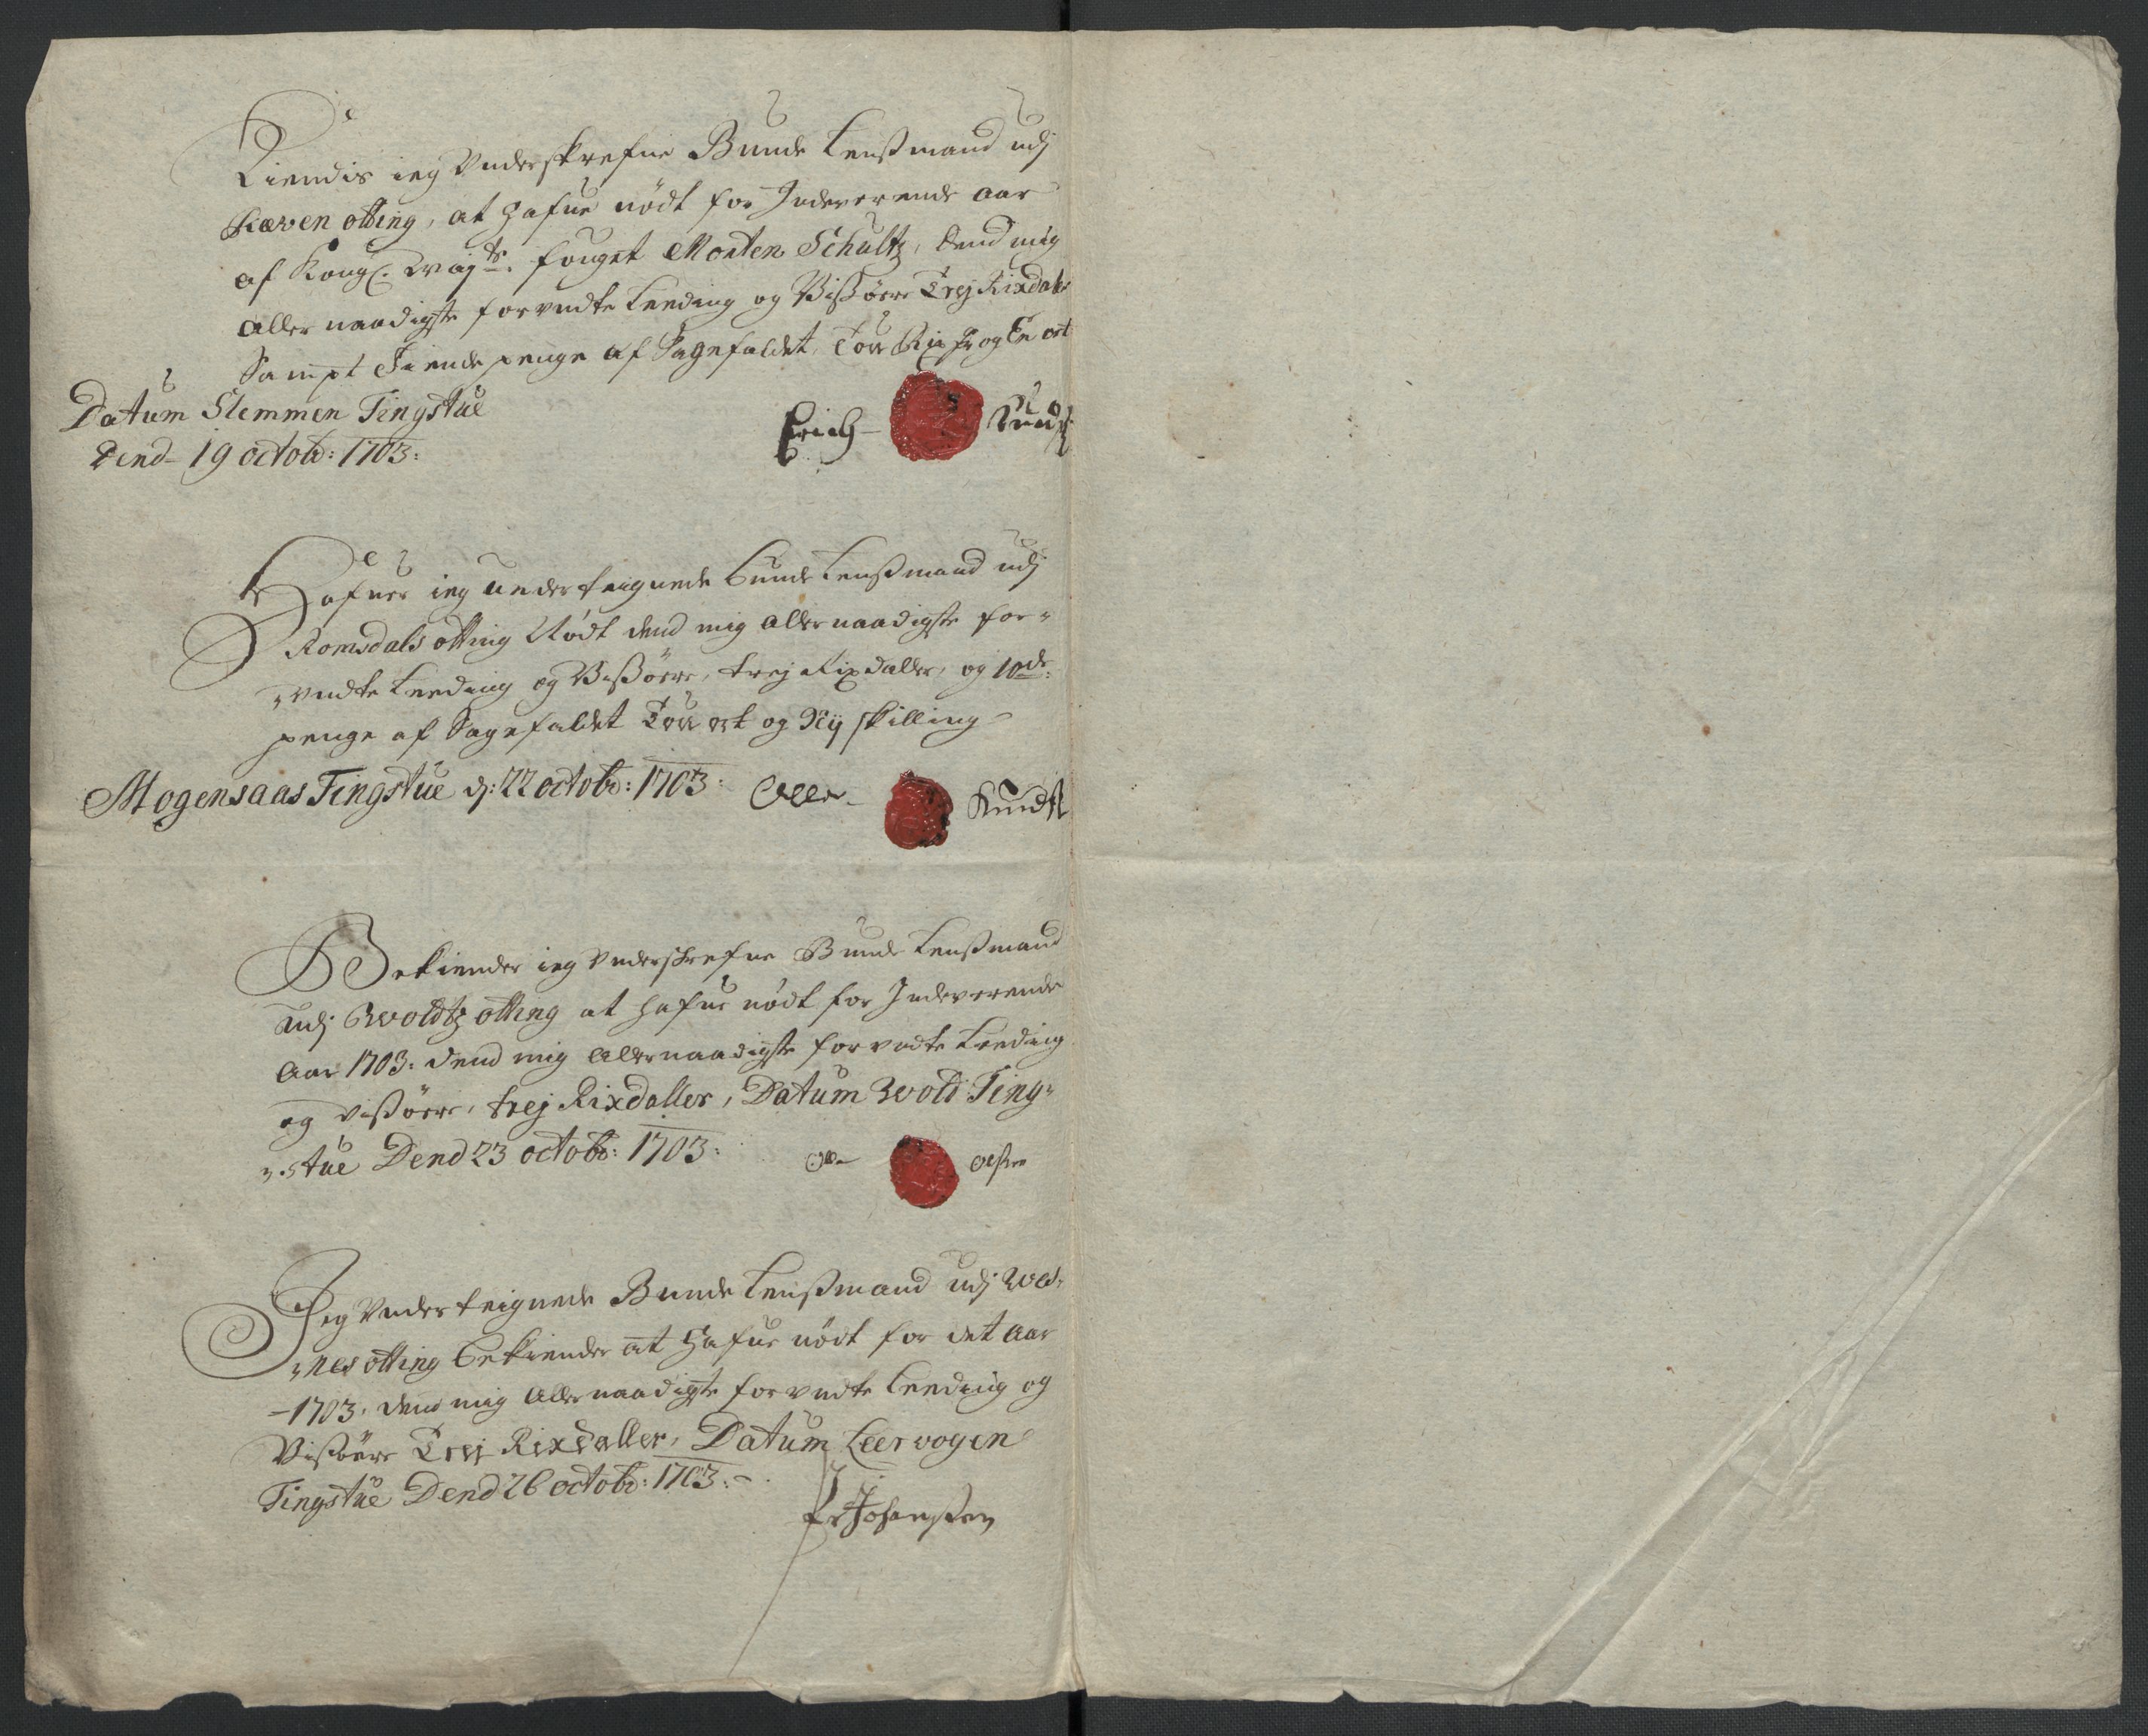 Kiendis ieg Underskrefne Bunde Lenßmand udj
Ræven otting, at hafue nödt for Indeverende Aar
af Kongl. Maÿts. fougt Morten Schultz, dend mig
allernaadigste forundte Leeding og Vißöere Trej Rixdaler
Sampt Tiende penge af Sagefaldet, Tou Rix dr og En ort
Datum Slemmen Tingstue
Dend 19 octobr: 1703:
Erich Knudß
Hafuer ieg underteignede bunde Lenßmand udj
Romsdals otting Nödt dend mig allernaadigste for=
=undte Leeding og Vißöere, trej Rixdaller, og 10de:
penge af Sagefaldet Tou ort og Nij skilling
Mogensaas Tingstue d: 22 octobr: 1703: Olle Knudß
Bekiender ieg Underskrefne Bunde Lenßmand
Udj Woldtz otting at hafue nödt for Indeverende
Aar 1703: dend mig allernaadigste forundte Leeding
og Vißöere, trej Rixdaller, Datum Wold Ting=
=stue Dend 23 octobr: 1703: Ole Olßen
Jeg Underteignede Bunde Lenßmand udj Wes=
=nes otting bekiender at hafue nödt for det Aar
-1703. dend mig Allernaadigste forundte Leeding og
Vißöere Trej Rixdaller, Datum Leervogen
Tingstue Dend 26 octobr: 1703:-
Johanßen